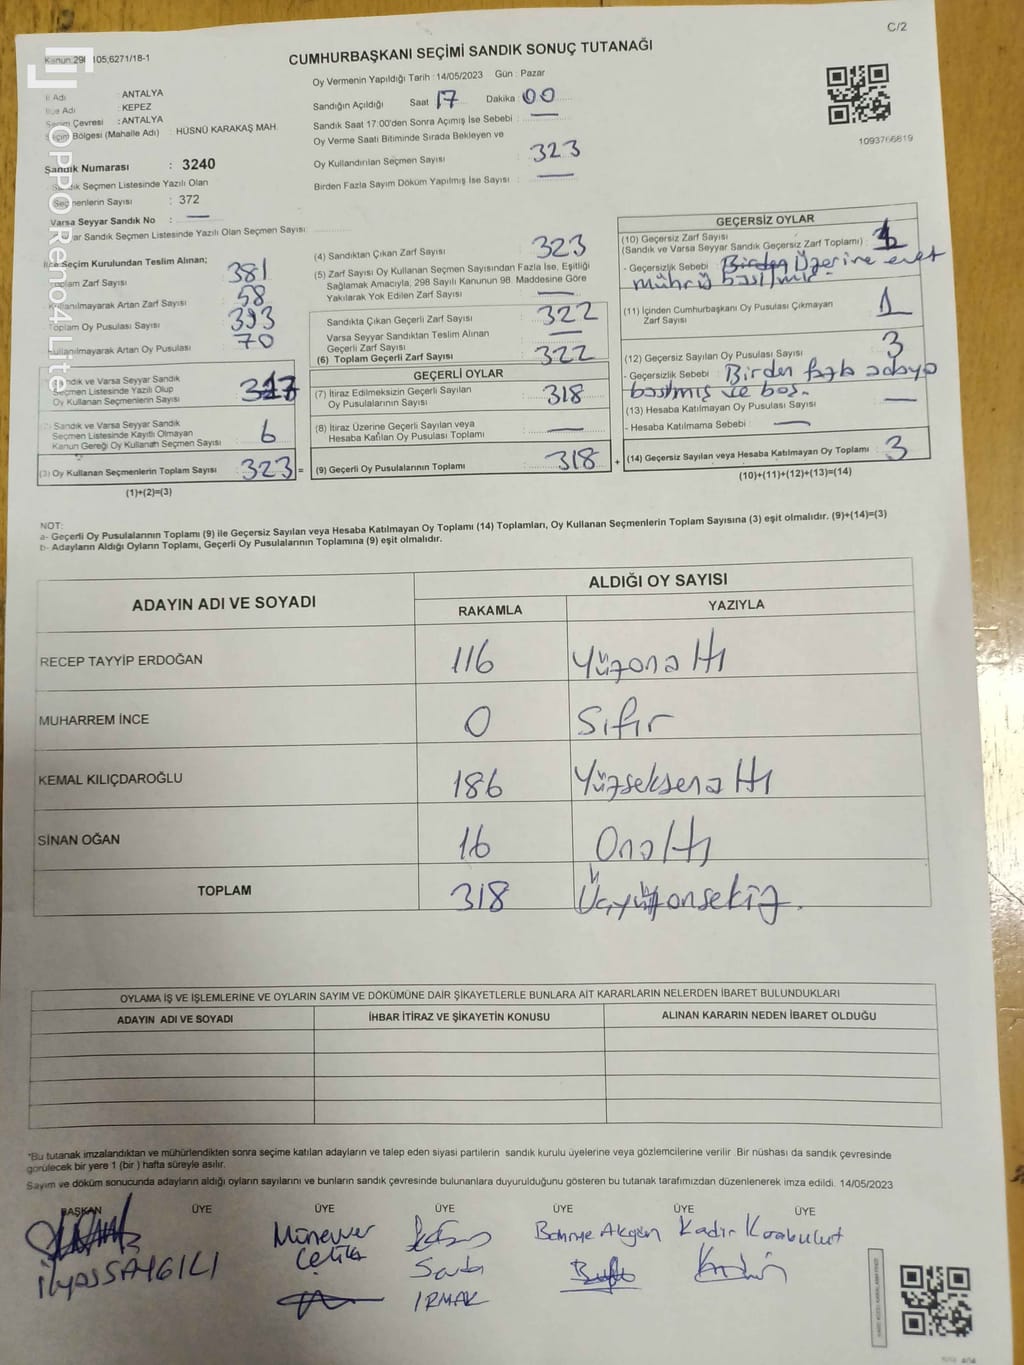 C/2
CUMHURBAŞKANI SEÇİMİ SANDIK SONUÇ TUTANAĞI
Oy Vermenin Yapıldığı Tarih : 14/05/2023 Gün : Pazar
: ANTALYA
: KEPEZ
Seçim Çevresi : ANTALYA
Bölgesi (Mahalle Adı) : HÜSNÜ KARAKAŞ MAH.
Sandık Numarası : 3240
Sandık Seçmen Listesinde Yazılı Olan
Seçmenlerin Sayısı : 372
Varsa Seyyar Sandık No : —
Sandık Seçmen Listesinde Yazılı Olan Seçmen Sayısı:
Sandığın Açıldığı Saat 17 Dakika 00
Sandık Saat 17:00'den Sonra Açımış İse Sebebi : —
Oy Verme Saati Bitiminde Sırada Bekleyen ve
Oy Kullandırılan Seçmen Sayısı : 323
Birden Fazla Sayım Döküm Yapılmış İse Sayısı : —
1093766819
Seçim Kurulundan Teslim Alınan;
Toplam Zarf Sayısı 381
Kullanılmayarak Artan Zarf Sayısı 58
Toplam Oy Pusulası Sayısı 393
Kullanılmayarak Artan Oy Pusulası 70
Sandık ve Varsa Seyyar Sandık
Seçmen Listesinde Yazılı Olup
Oy Kullanan Seçmenlerin Sayısı 317
Sandık ve Varsa Seyyar Sandık
Seçmen Listesinde Kayıtlı Olmayan
Kanun Gereği Oy Kullanan Seçmen Sayısı 6
(3) Oy Kullanan Seçmenlerin Toplam Sayısı 323 =
(1)+(2)=(3)
(4) Sandıktan Çıkan Zarf Sayısı 323
(5) Zarf Sayısı Oy Kullanan Seçmen Sayısından Fazla İse, Eşitliği
Sağlamak Amacıyla, 298 Sayılı Kanunun 98. Maddesine Göre
Yakılarak Yok Edilen Zarf Sayısı : —
Sandıkta Çıkan Geçerli Zarf Sayısı : 322
Varsa Seyyar Sandıktan Teslim Alınan
Geçerli Zarf Sayısı : —
(6) Toplam Geçerli Zarf Sayısı : 322
GEÇERLİ OYLAR
(7) İtiraz Edilmeksizin Geçerli Sayılan
Oy Pusulalarının Sayısı : 318
(8) İtiraz Üzerine Geçerli Sayılan veya
Hesaba Katılan Oy Pusulası Toplamı : —
(9) Geçerli Oy Pusulalarının Toplamı : 318 +
GEÇERSİZ OYLAR
(10) Geçersiz Zarf Sayısı
(Sandık ve Varsa Seyyar Sandık Geçersiz Zarf Toplamı) : 1
- Geçersizlik Sebebi : Birden Üzerine evet
mührü basılmış
(11) İçinden Cumhurbaşkanı Oy Pusulası Çıkmayan
Zarf Sayısı 1
(12) Geçersiz Sayılan Oy Pusulası Sayısı : 3
- Geçersizlik Sebebi : Birden fazla adaya
basılmış ve boş.
(13) Hesaba Katılmayan Oy Pusulası Sayısı : —
- Hesaba Katılmama Sebebi : —
(14) Geçersiz Sayılan veya Hesaba Katılmayan Oy Toplamı : 3
(10)+(11)+(12)+(13)=(14)
NOT:
a- Geçerli Oy Pusulalarının Toplamı (9) ile Geçersiz Sayılan veya Hesaba Katılmayan Oy Toplamı (14) Toplamları, Oy Kullanan Seçmenlerin Toplam Sayısına (3) eşit olmalıdır. (9)+(14)=(3)
b- Adayların Aldığı Oyların Toplamı, Geçerli Oy Pusulalarının Toplamına (9) eşit olmalıdır.
ADAYIN ADI VE SOYADI ALDIĞI OY SAYISI
RAKAMLA YAZIYLA
RECEP TAYYİP ERDOĞAN 116 Yüzonaltı
MUHARREM İNCE 0 Sıfır
KEMAL KILIÇDAROĞLU 186 Yüzseksenaltı
SİNAN OĞAN 16 Onaltı
TOPLAM 318 Üçyüzonsekiz.
OYLAMA İŞ VE İŞLEMLERİNE VE OYLARIN SAYIM VE DÖKÜMÜNE DAİR ŞİKAYETLERLE BUNLARA AİT KARARLARIN NELERDEN İBARET BULUNDUKLARI
ADAYIN ADI VE SOYADI İHBAR İTİRAZ VE ŞİKAYETİN KONUSU ALINAN KARARIN NEDEN İBARET OLDUĞU
*Bu tutanak imzalandıktan ve mühürlendikten sonra seçime katılan adayların ve talep eden siyasi partilerin sandık kurulu üyelerine veya gözlemcilerine verilir. Bir nüshası da sandık çevresinde
görülecek bir yere 1 (bir ) hafta süreyle asılır.
Sayım ve döküm sonucunda adayların aldığı oyların sayılarını ve bunların sandık çevresinde bulunanlara duyurulduğunu gösteren bu tutanak tarafımızdan düzenlenerek imza edildi. 14/05/2023
BAŞKAN ÜYE ÜYE ÜYE ÜYE ÜYE ÜYE
İlyas SAYGILI
Münevver
Çelik
Seda
IRMAK
Akgün
Kadir Karabulut
OPPO Reno4 Lite